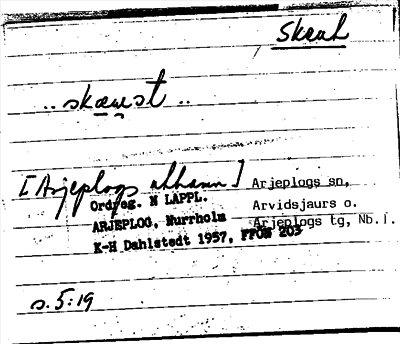 Skeah
.. skæu̯st ..
[Arjeplogs allmänn]
Ordreg. N LAPPL.
ARJEPLOG, Nurrholm
K-H Dahlstedt 1957, FFÖN 203
Arjeplogs sn,
Arvidsjaurs o.
Arjeplogs tg, Nb.l.
s. 5:19